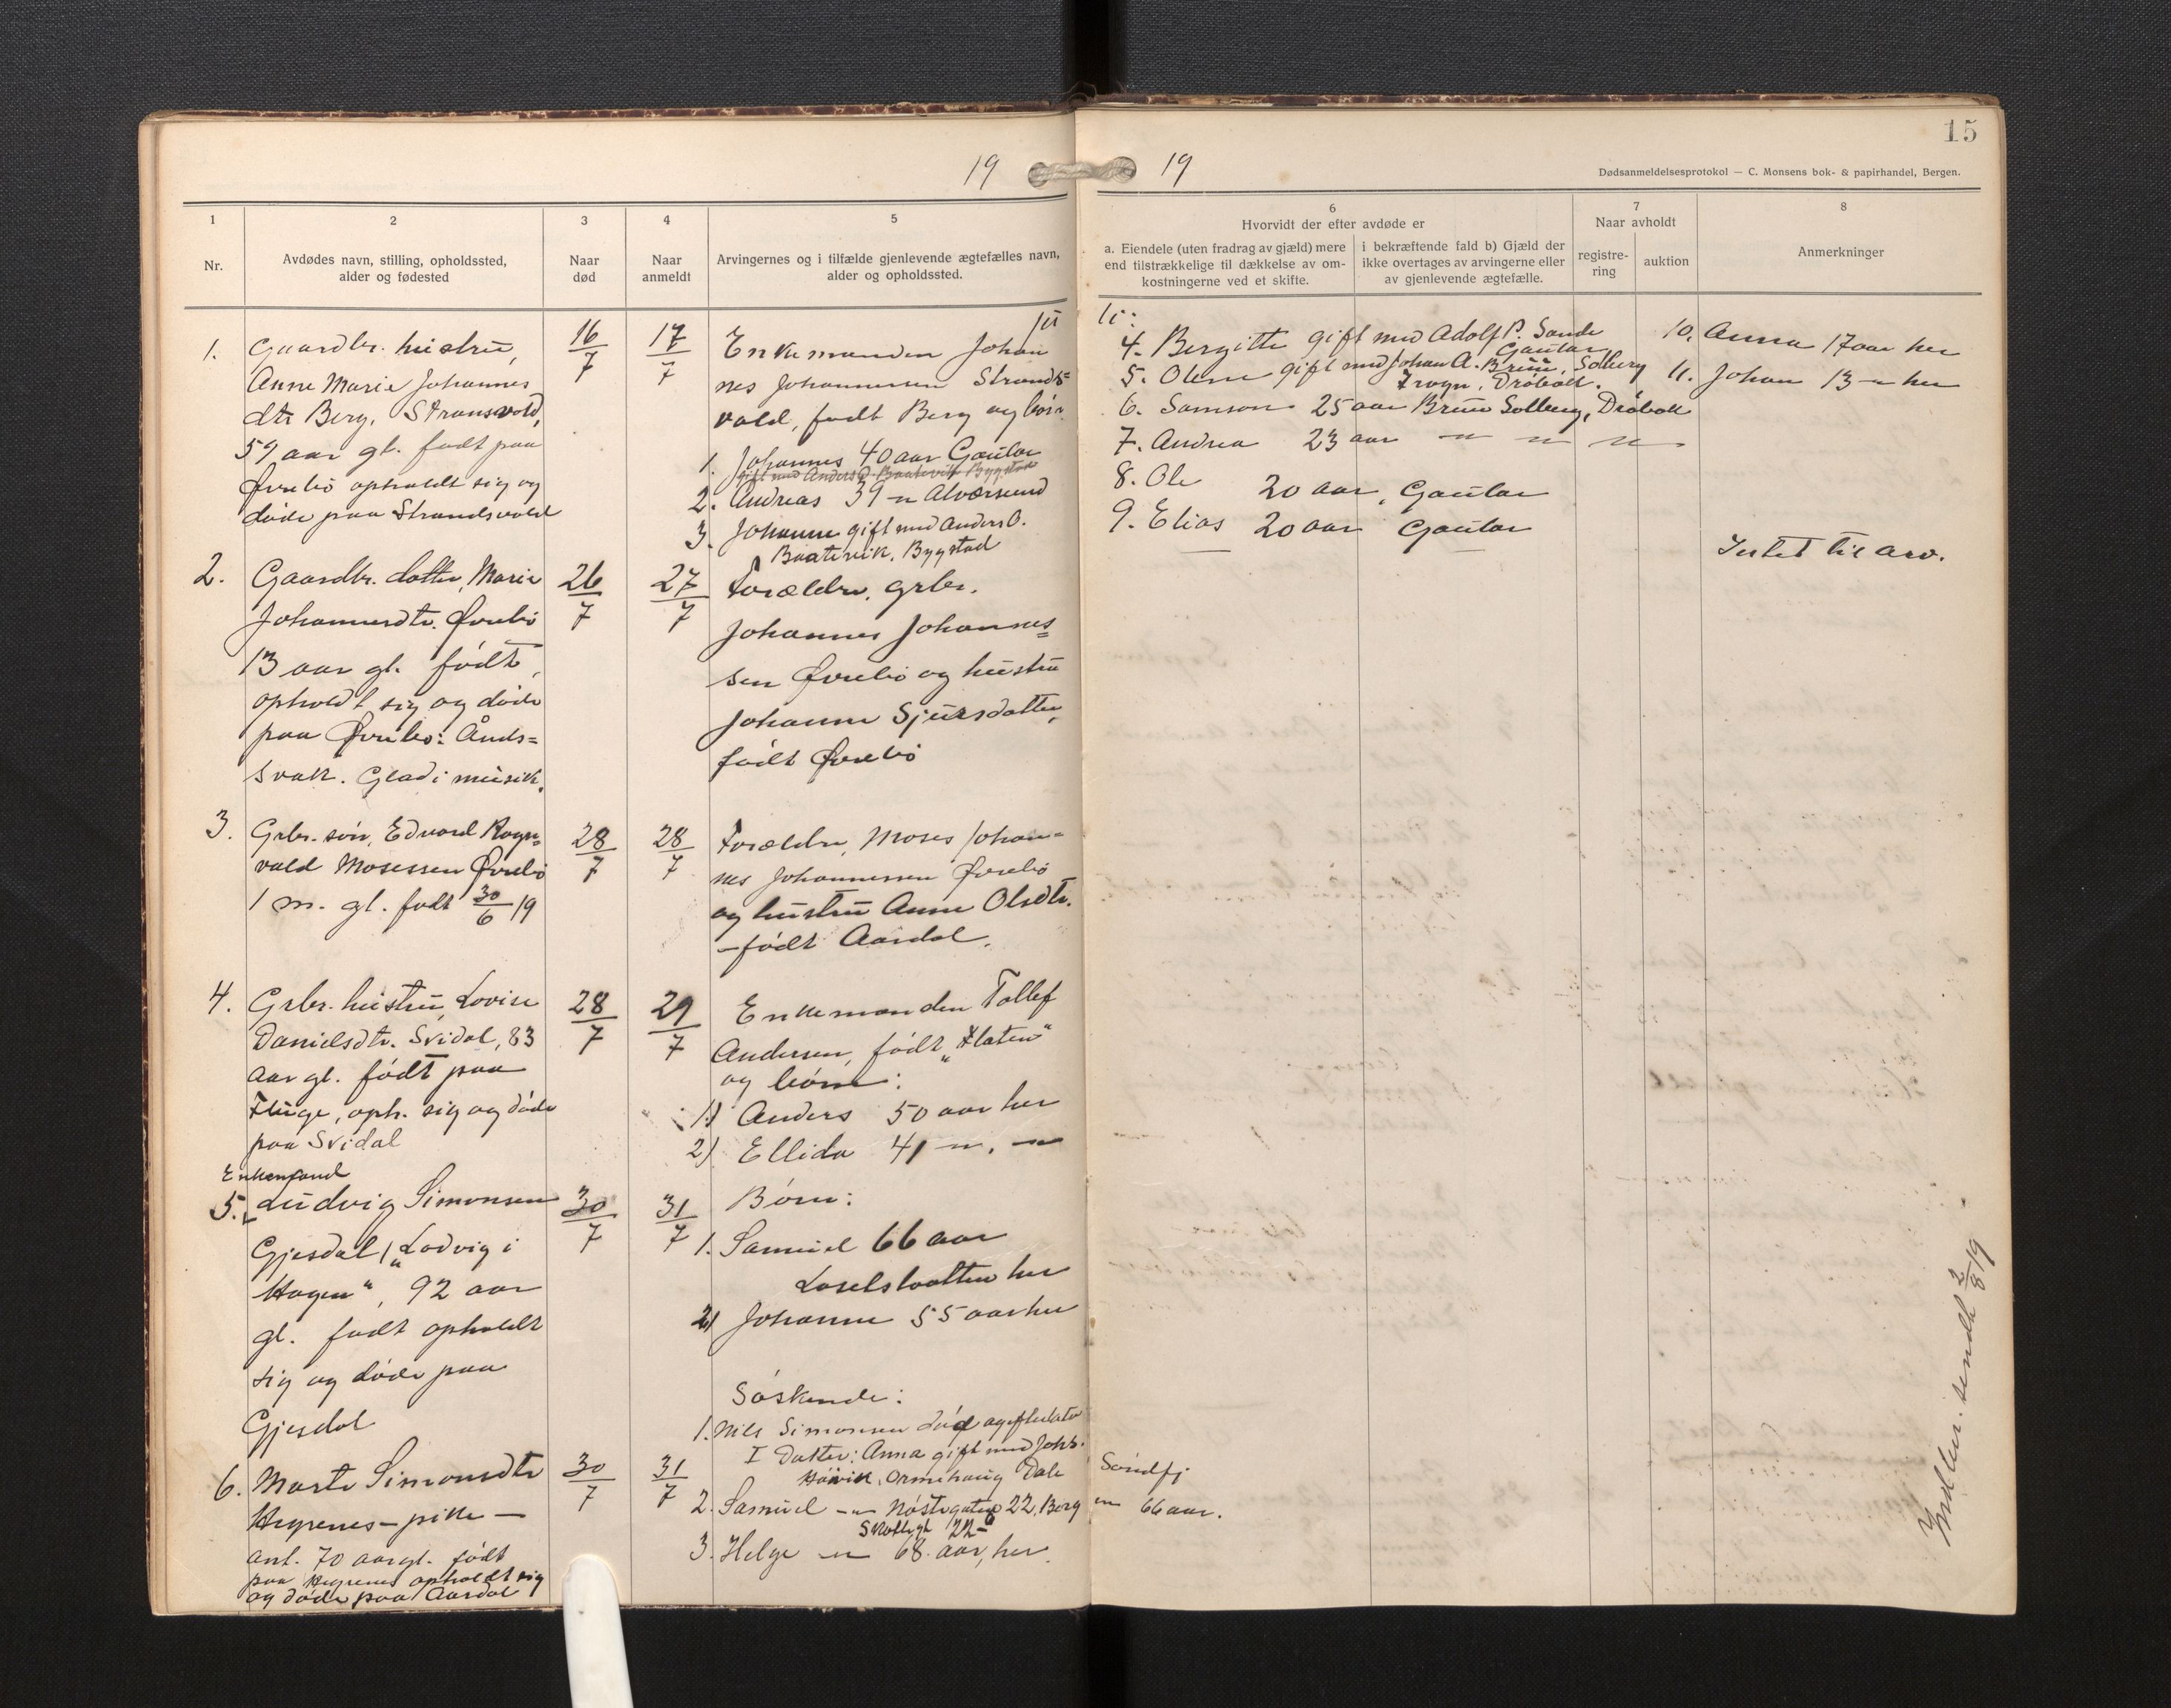 15
19
19
Dødsanmeldelsesprotokol — C. Monsens bok- & papirhandel, Bergen.
1
Nr.
2
Avdødes navn, stilling, opholdssted,
alder og fødested
3
Naar
død
4
Naar
anmeldt
5
Arvingernes og i tilfælde gjenlevende ægtefælles navn,
alder og opholdssted.
6
Hvorvidt der efter avdøde er
a. Eiendele (uten fradrag av gjæld) mere
end tilstrækkelige til dækkelse av om-
kostningerne ved et skifte.
i bekræftende fald b) Gjæld der
ikke overtages av arvingerne eller
av gjenlevende ægtefælle.
7
Naar avholdt
registre-
ring
auktion
8
Anmerkninger
1. Gaardbr. hustru,
Anne Marie Johannes
dtr Berg, Stransvold,
59 aar gl. født paa
Øvrebö opholdt sig og
døde paa Strandsvold
16/7
17/7
Enkemanden Johan
nes Johannessen Strands=
vold, født Berg og börn
1. Johannes 40 aar Gaular
gift med Anders O. Baatevik Bygstad
2. Andreas 39 — Alversund
3. Johanne gift med Anders O.
Baatevik, Bygstad
4. Bergitte gift med Adolf P. Sande
Gaular
5. Oline gift med Johan A. Bruu, Solberg
Frogn, Dröbak.
6. Samson 25 aar Bruu Solberg, Dröbak
7. Andrea 23 aar — — —
8. Ole 20 aar, Gaular
9. Elias 20 aar Gaular
10. Anna 17 aar her
11. Johan 13 — her
Intet til arv.
2. Gaardbr. datter, Marie
Johannesdtr. Øvrebö
13 aar gl. født,
opholdt sig og døde
paa Øvrebö: Ånds=
svak. Glad i musik.
26/7
27/7
Forældre, grbr.
Johannes Johannes=
sen Øvrebö og hustru
Johanne Sjursdatter,
født Øvrebö
3. Grbr. sön, Edvard Ragn=
vald Mosessen Øvrebö
1 m. gl. født 30/6 19
28/7
28/7
Forældre, Moses Johan=
nes Johannessen Øvrebö
og hustru Anne Olsdtr.
— født Aardal.
4. Grbr. hustru, Lovise
Danielsdtr. Svidal, 83
aar gl. født paa
Fluge, oph. sig og døde
paa Svidal
28/7
29/7
Enkemanden Tollef
Andersen, født „Flaten"
og börn:
1) Anders 50 aar her
2) Ellida 41 — . —
Enkemand
5. Ludvig Simonsen
Gjesdal („Lodvig i
Hagen", 92 aar
gl. født opholdt
sig og döde paa
Gjesdal
30/7
31/7
Börn:
1. Samuel 66 aar
her
2) Johanne 55 aar her
6. Marte Simonsdtr
Hegrenes — pike —
ant. 70 aar gl. født
paa Hegrenes opholdt sig
og döde paa Aardal
30/7
31/7
Söskende:
1. Nils Simonsen död og efterlater
1 Datter: Anna gift med Johs.
Hövik, Ormehaug Dale Söndfj
2. Samuel — Nöstegaten 22, Bergen 66 aar.
3. Helge — 68 aar, her.
Indber. sendt 2/8 19